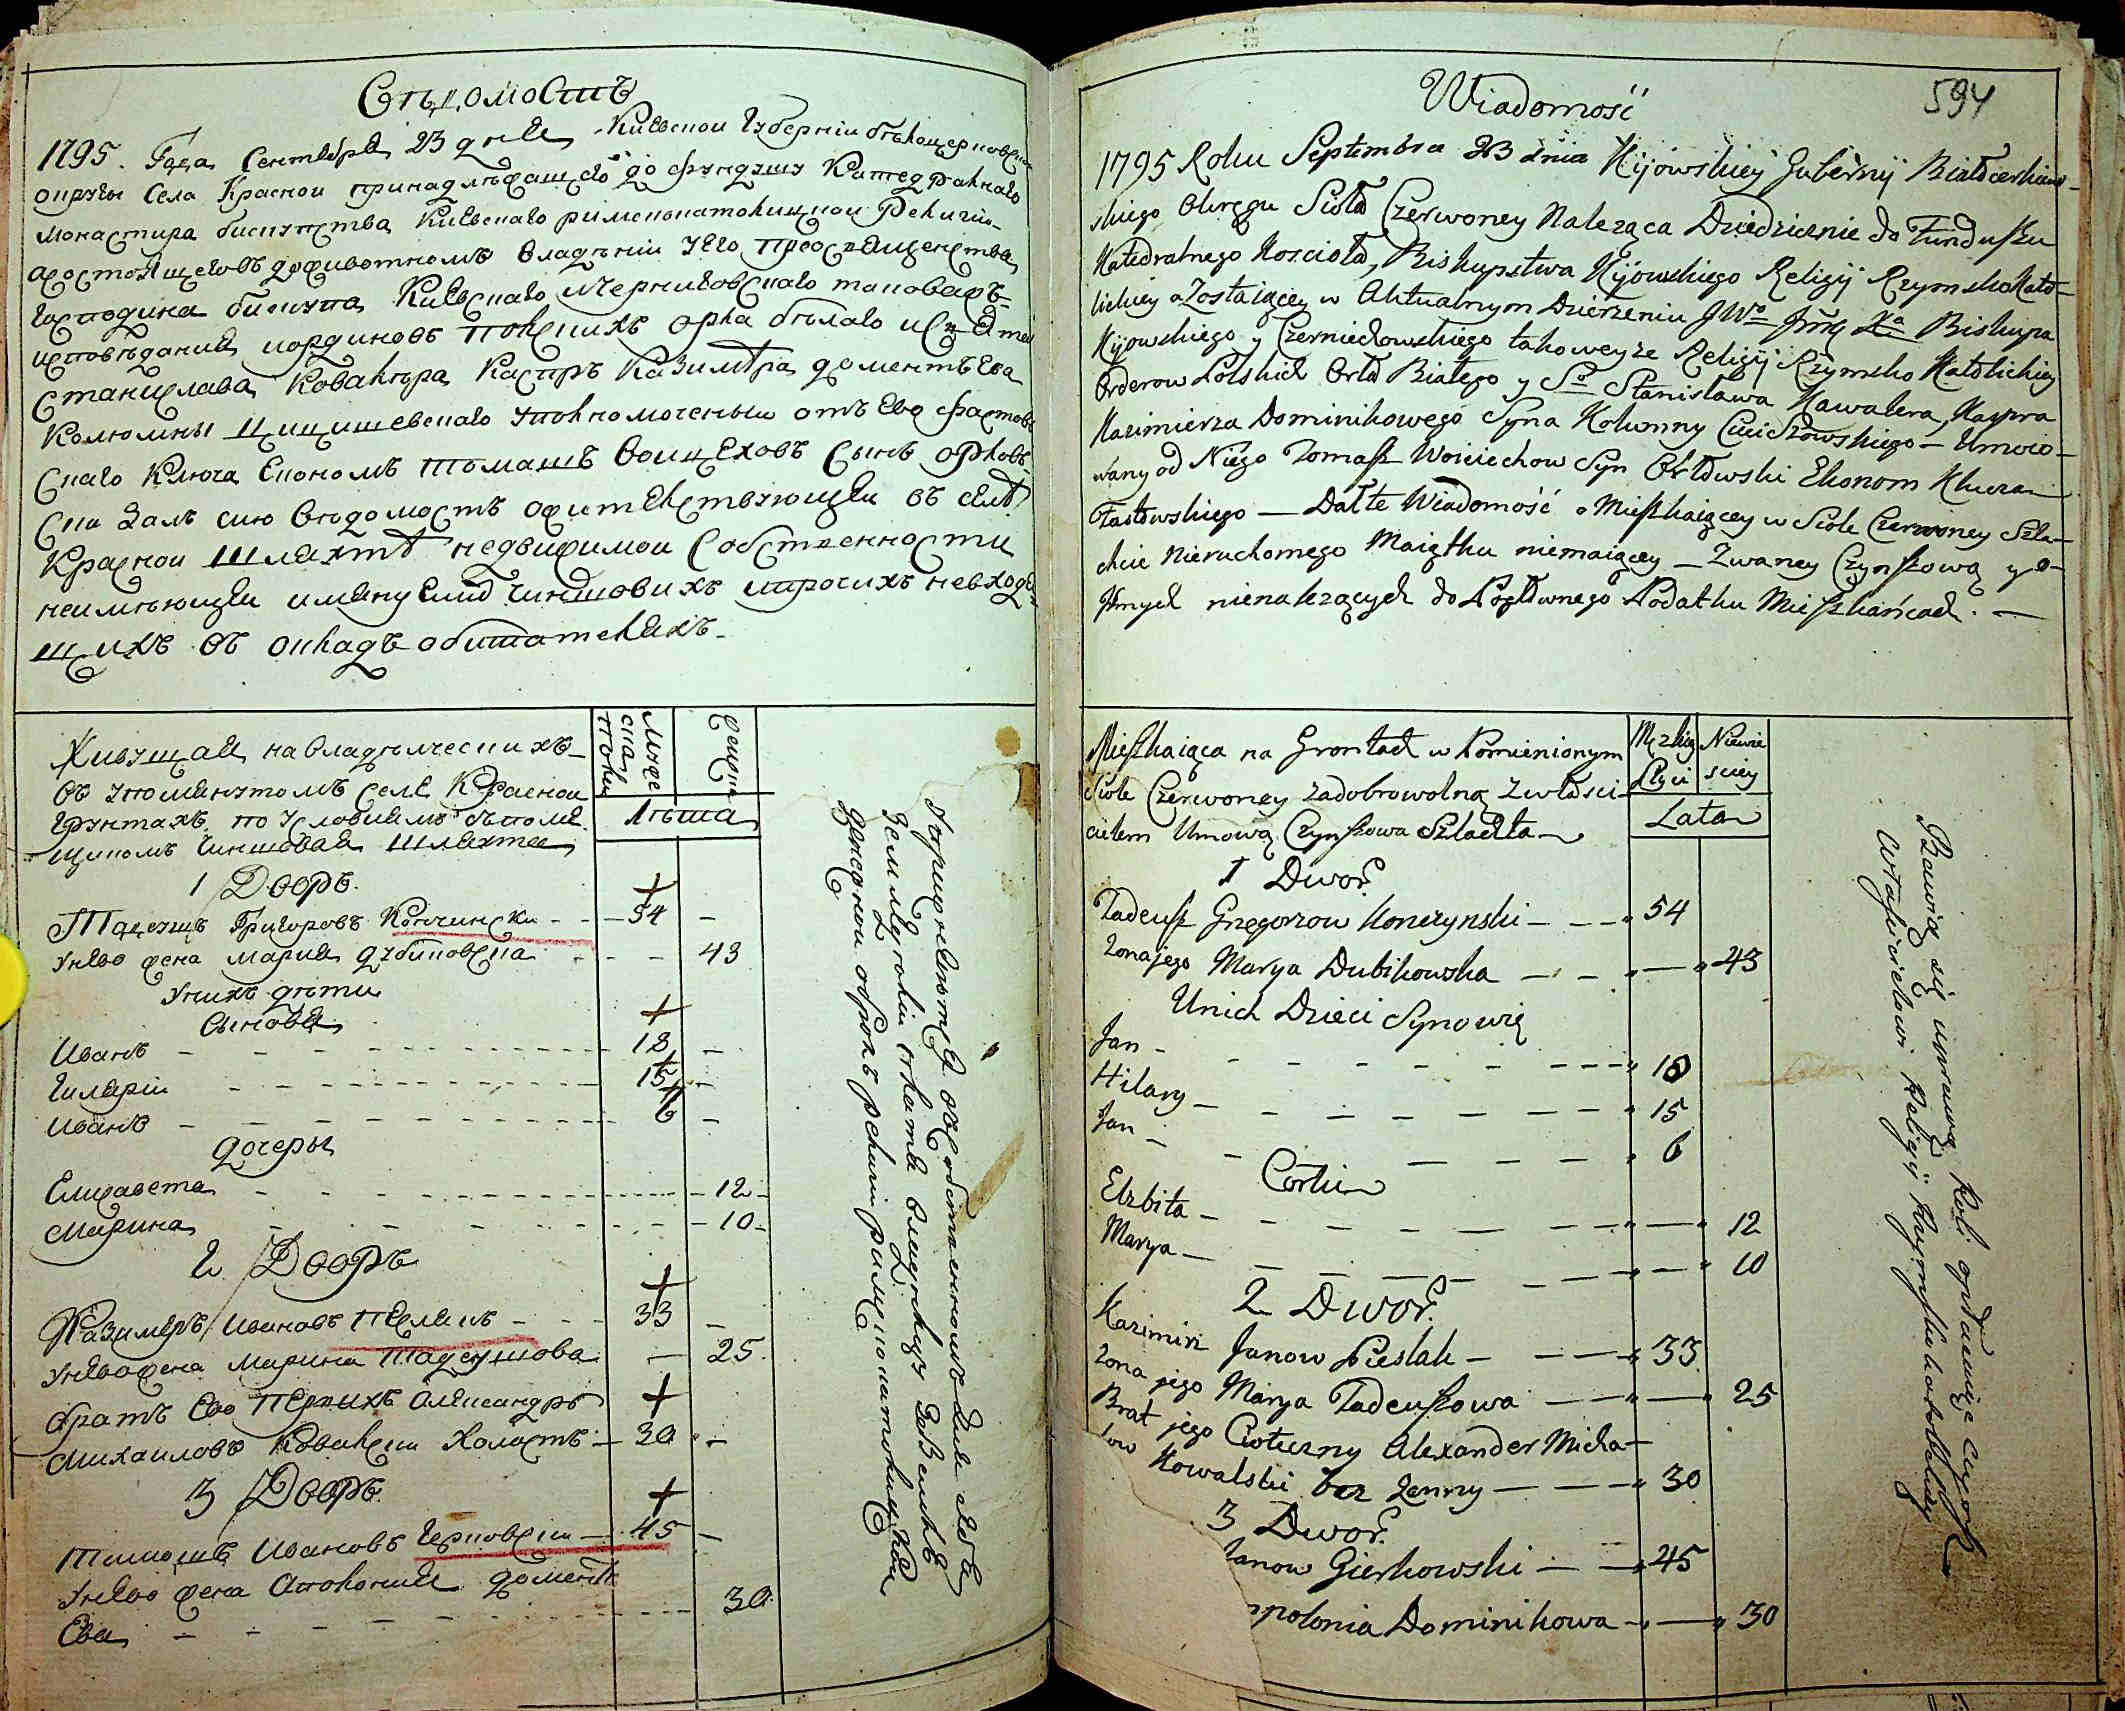 Вѣдомость
1795. Года Сентября 23 дня Киевской Губернии бѣлоцерковской
округи села Красной принадлежащего до фундушу Катедралнаго
монастира бископства Киевскаго римскокатолицкой Религии
а состоящего въ доживотномъ владѣнии у его преосвященства
господина бископа Киевскаго и Черниговскаго таковаго
исповѣдания и ординовъ полскихъ орла бѣлаго и святаго
Станислава Ковалера Каспръ Казимѣра доментѣева
Колюмны Цицишевскаго уполномоченый отъ его фастов
скаго Ключа Економъ томашъ Войцеховъ сынъ орлов
ски далъ сию вѣдомость о жителствующей въ селѣ
Красной шляхтѣ недвижимой собственности
неимѣющей именуемой чиншовихъ и прочихъ невходя
щихъ въ окладъ обитателяхъ
Живущая на владѣлческихъ
въ упомянутомъ селѣ Красной
грунтахъ по условиямъ съ поме
щикомъ чиншовая шляхта
Мужеска полу
женска
Лѣта
1 Дворъ
Тадеушъ Григоровъ Кончински - - 54 -
У него жена Мария дубиковска - - - 43
У нихъ дѣти
Сынова
Иванъ - 18 -
Гилярий - 15 -
Иванъ - 6 -
дочеры
Елизавета - 12 -
Марина - 10 -
2 Дворъ
Казимеръ Ивановъ песлякъ - 33 -
У него жена Марина тадеушова - 25
братъ его Александръ
Михайловъ Ковалски холостъ - 30 -
3 Дворъ
Ивановъ - 45 -
У него жена Аполония домент
ева - 30
Wiadomość
594
1795 Roku Septembra 23 dnia Kijowskiey Gubernij Białocerkiew-
skiego Okręgu Sioła Czerwoney Należąca Dziedzicznie do Funduszu
Katedralnego Kościoła, Biskupstwa Kijowskiego Religij Rzymsko Kato-
lickiey a Zostaiącey w Aktualnym Dzierżeniu JWo Jmć Xa Biskupa
Kijowskiego y Czerniechowskiego takoweyże Religij Rzymsko Katolickiey
Orderow Polskich Orła Białego y So Stanisława Kawalera, Kaspra
Kazimierza Dominikowego Syna Kolumny Cieciszowskiego - Umoco-
wany od Niego Tomasz Woiciechow Syn Orłowski Ekonom Klucza
Fastowskiego — Dał te Wiadomość o Mieszkaiącey w Siole Czerwoney Szla-
chcie Nieruchomego Maiątku niemaiącey — Zwaney Czynszową y o
Jnnych nienależących do Pogłównego Podatku Mieszkańcach. —
Mieszkaiąca na Gruntach w Pomienionym
Siole Czerwoney zadobrowolną z właści-
cielem Umową Czynszowa Szlachta
Męzkiey Płci
Niewie sciey
Lata
1 Dwor.
Tadeusz Grzegorzow Konczynski - - - 54
Zona jego Marya Dubikowska - - - 43
Unich Dzieci Synowie
Jan - - - 18
Hilary - - - 15
Jan - - - 6
Corki
Elzbita - - - 12
Marya - - - 10
2 Dwor.
Kazimirz Janow Pieslak - - - 33
Zona jego Marya Tadeuszowa - - - 25
Brat jego Cioteczny Alexander Micha-
łow Kowalski bez Zenny - - - 30
3 Dwor.
Janow Gierkowski - - - 45
polonia Dominikowa - - - 30
Bawią się uprawą Roli opłacaiąc Czynsz
Właścicielowi Religij Rzymsko katolickiey